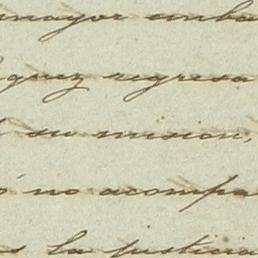 mayor emba
guez regresa
su mision,
ó no acompa
s la justicia